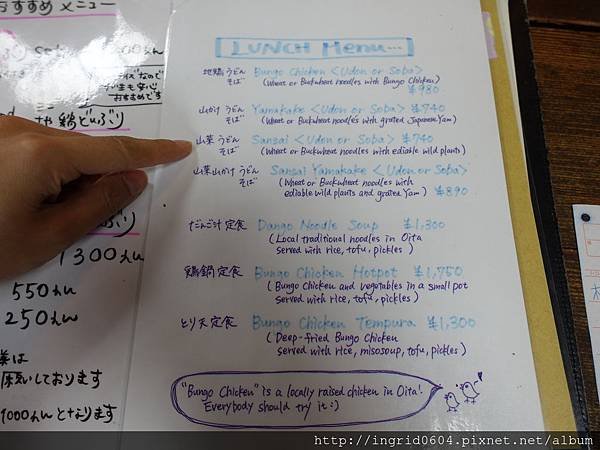 おすすめ メニュー
なので
おすすめです
1300えん
550えん
250えん
しております
1000えんとなります
LUNCH Menu...
地鶏 うどん Bungo Chicken <Udon or Soba>
そば (Wheat or Buckwheat noodles with Bungo Chicken)
¥980
山かけ うどん Yamakake <Udon or Soba> ¥740
そば (Wheat or Buckwheat noodles with grated Japanese Yam)
山菜 うどん Sansai <Udon or Soba> ¥740
そば (Wheat or Buckwheat noodles with ediable wild plants)
山菜山かけ うどん Sansai Yamakake <Udon or Soba>
そば (Wheat or Buckwheat noodles with
ediable wild plants and grated Yam) ¥890
だんご汁 定食 Dango Noodle Soup ¥1,300
(Local traditional noodles in Oita
served with rice, tofu, pickles)
鶏鍋 定食 Bungo Chicken Hotpot ¥1,750
(Bungo Chicken and vegetables in a small pot
served with rice, tofu, pickles)
とり天 定食 Bungo Chicken Tempura ¥1,300
(Deep-fried Bungo Chicken
served with rice, misosoup, tofu, pickles)
"Bungo Chicken" is a locally raised chicken in Oita!
Everybody should try it :)
http://ingrid0604.pixnet.net/album